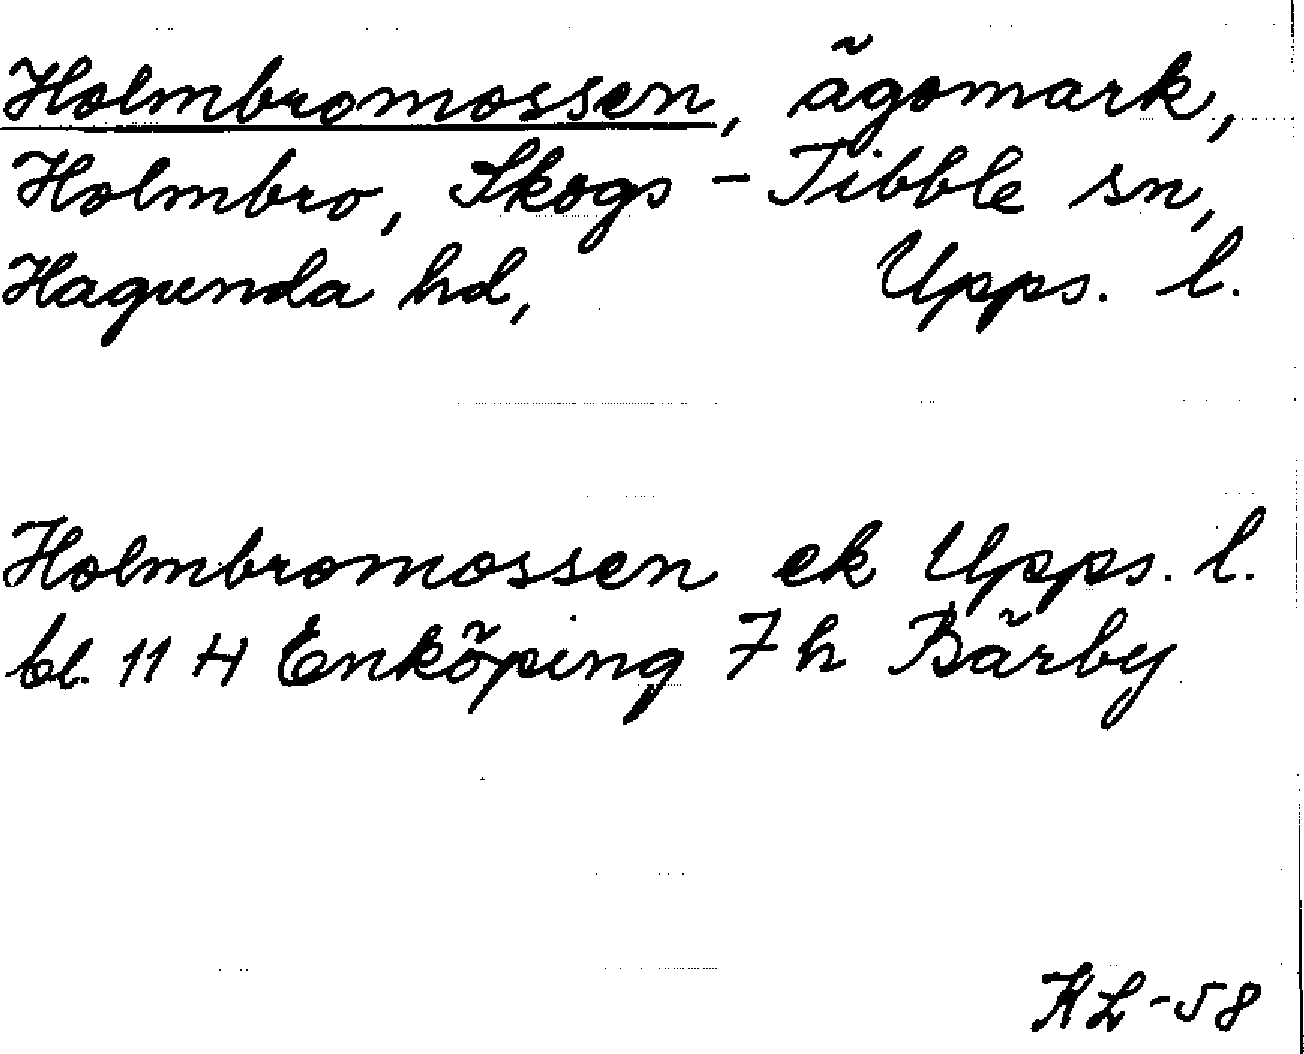 Holmbromossen, ägomark,
Holmbro, Skogs-Tibble sn,
Hagunda hd, Upps. l.
Holmbromossen ek Upps. l.
bl. 11 H Enköping 7 h Bärby
KL-58